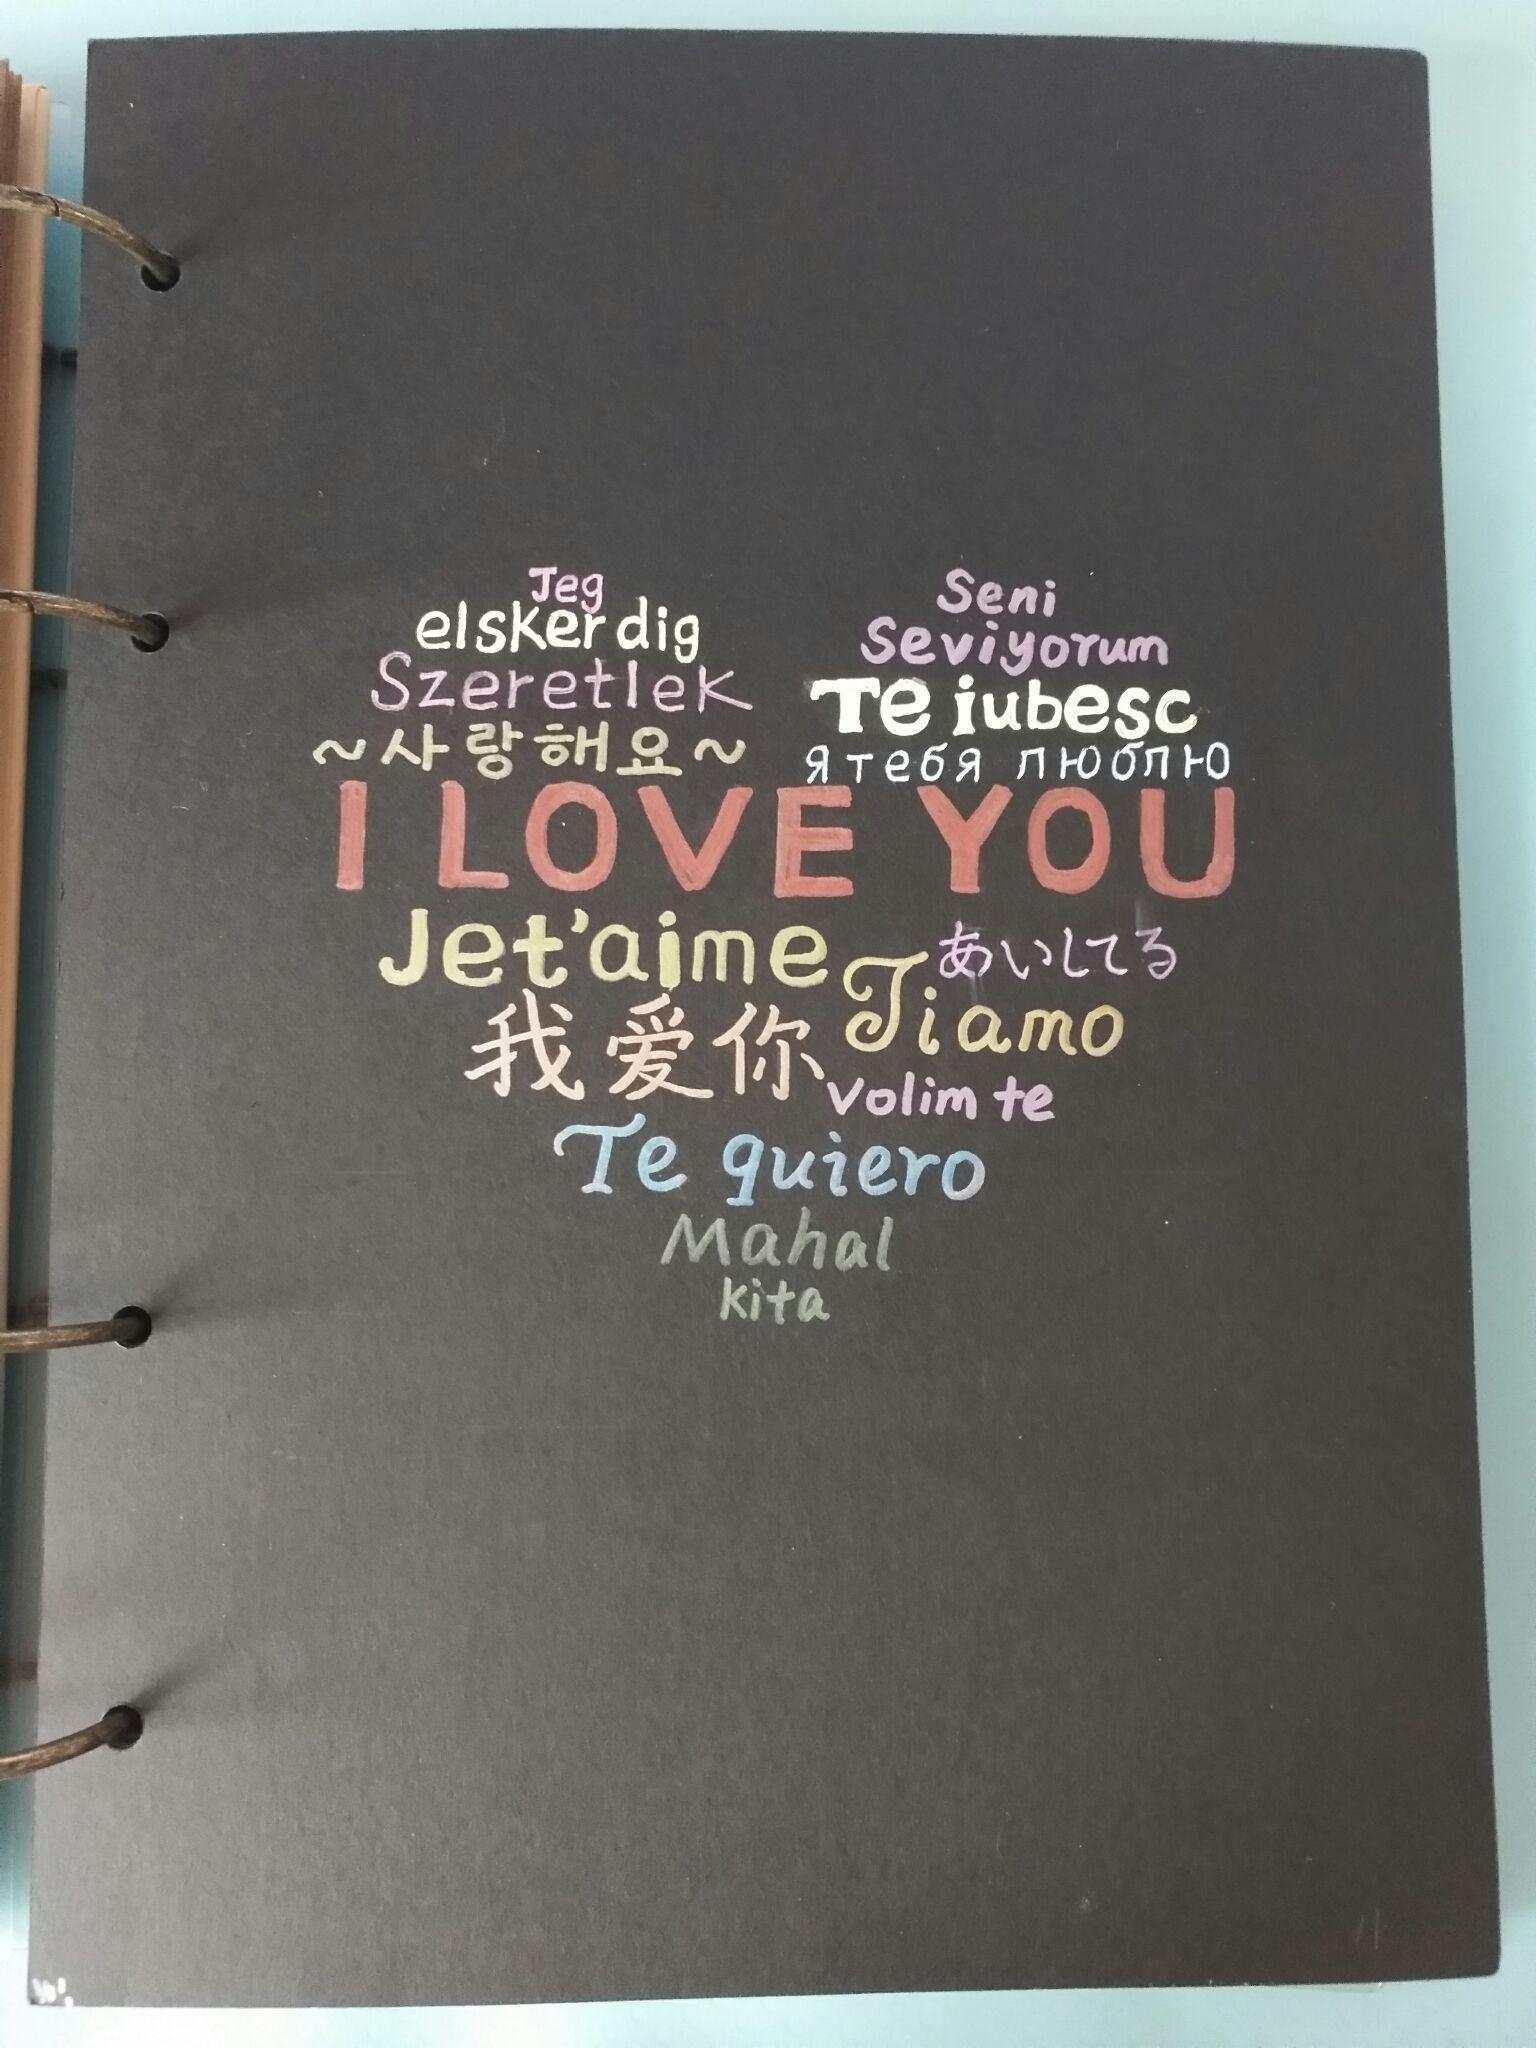 Jeg
elsker dig
Szeretlek
~사랑해요~
Seni
seviyorum
Te iubesc
я тебя люблю
I LOVE YOU
Je t'aime
あいしてる
Ti amo
我爱你
volim te
Te quiero
Mahal
kita